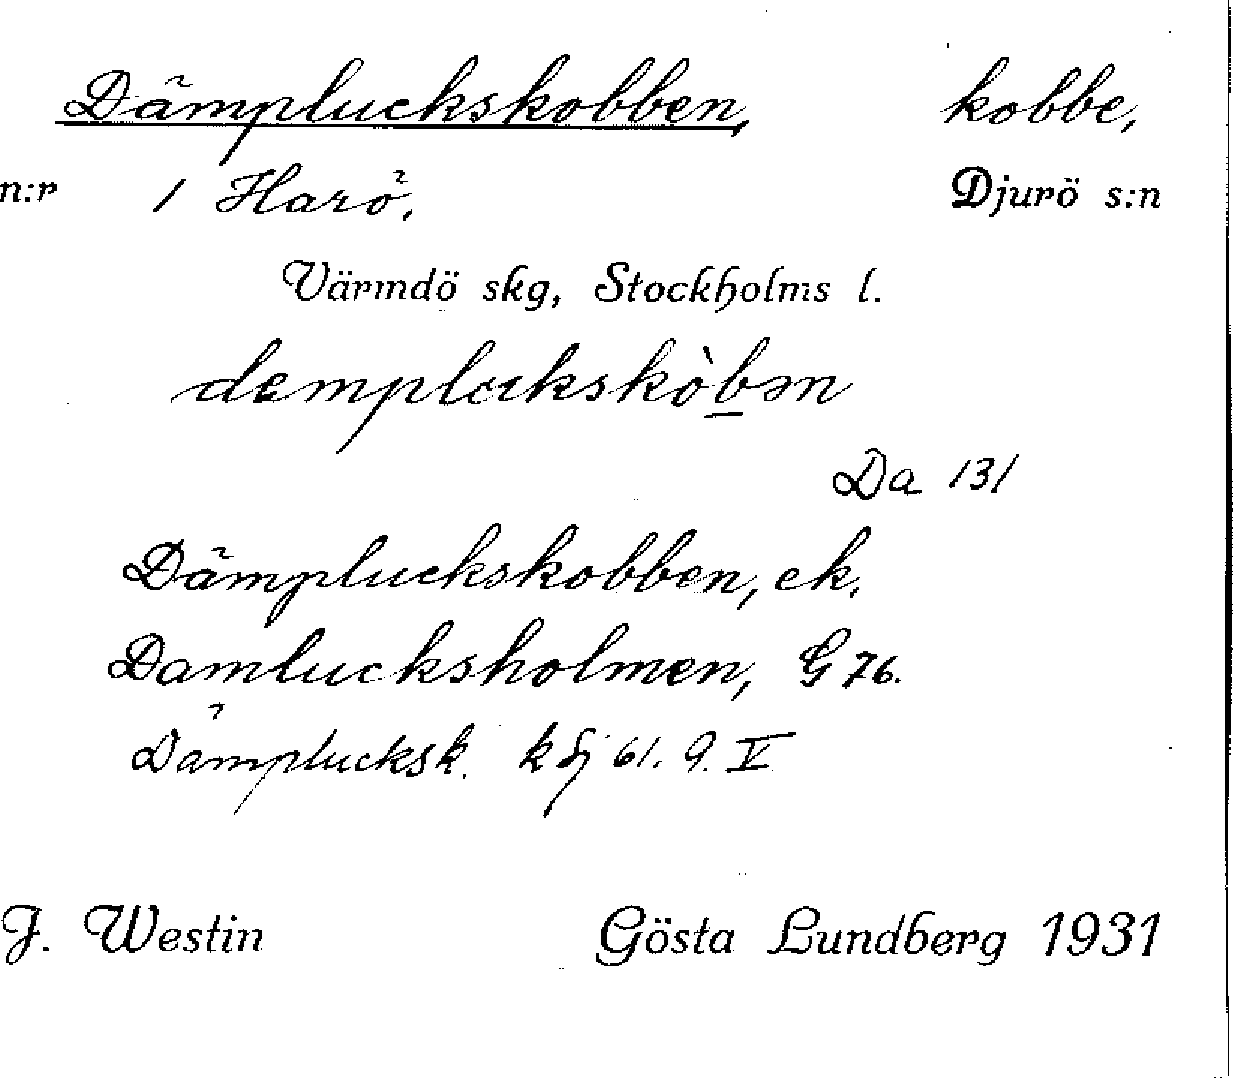 Dämpluckskobben, kobbe,
n:r 1 Harö, Djurö s:n
Värmdö skg, Stockholms l.
demplukskò̩bən
Da 131
Dämpluckskobben, ek.
Damlucksholmen, G 76.
Dämplucksk. k 61. 9. V
J. Westin Gösta Lundberg 1931